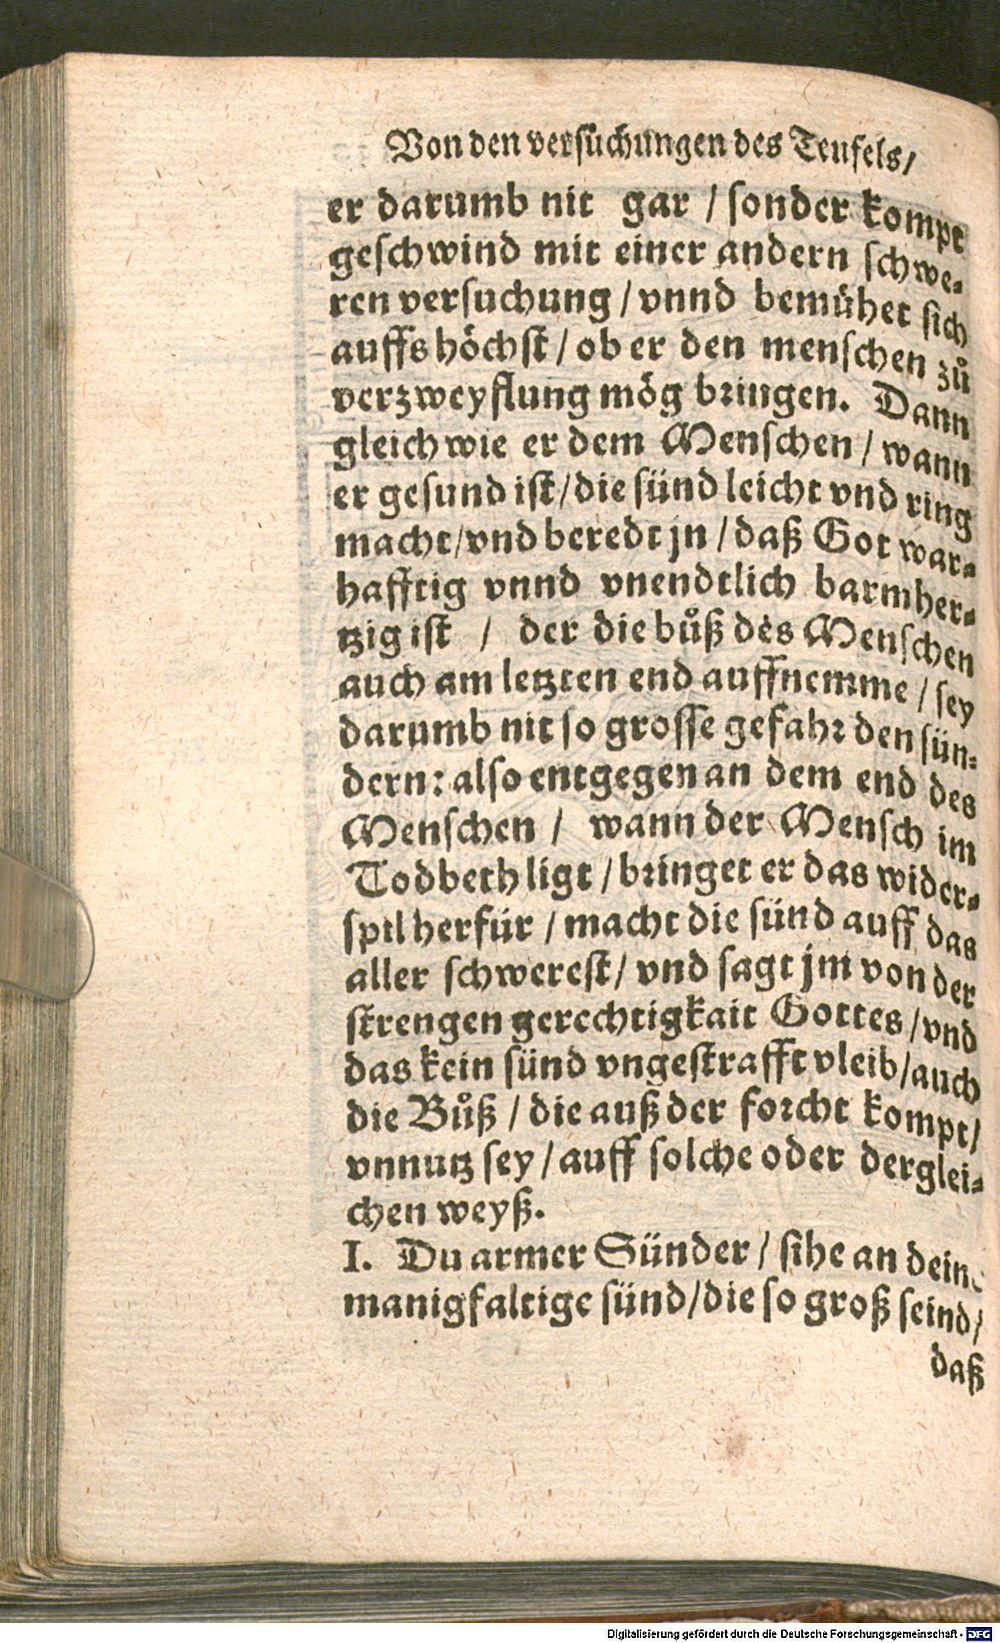 Von den versuͤchungen des Teufels/
er darumb nit gar / sonder kompt
geschwind mit einer andern schwe⸗
ren versuchung / vnnd bemuͤhet sich
auffs hoͤchst / ob er den menschen zuͦ
verzweyflung moͤg bringen. Dann
gleich wie er dem Menschen / wann
er gesund ist / die suͤnd leicht vnd ring
macht / vnd beredt jn / daß Got war⸗
hafftig vnnd vnendtlich barmher⸗
tzig ist / der die buͦß des Menschen
auch am letzten end auffnemme / sey
darumb nit so grosse gefahr den suͤn⸗
dern: also entgegen an dem end des
Menschen / wann der Mensch im
Todbeth ligt / bringet er das wider⸗
spil herfuͤr / macht die suͤnd auff das
aller schwerest / vnd sagt jm von der
strengen gerechtigkait Gottes / vnd
das kein suͤnd vngestrafft vleib / auch
die Buͦß / die auß der forcht kompt /
vnnutz sey / auff solche oder derglei⸗
chen weyß.
I. Du armer Suͤnder / sihe an deine
manigfaltige suͤnd / die so groß seind /
daß
Digitalisierung gefördert durch die Deutsche Forschungsgemeinschaft - DFG